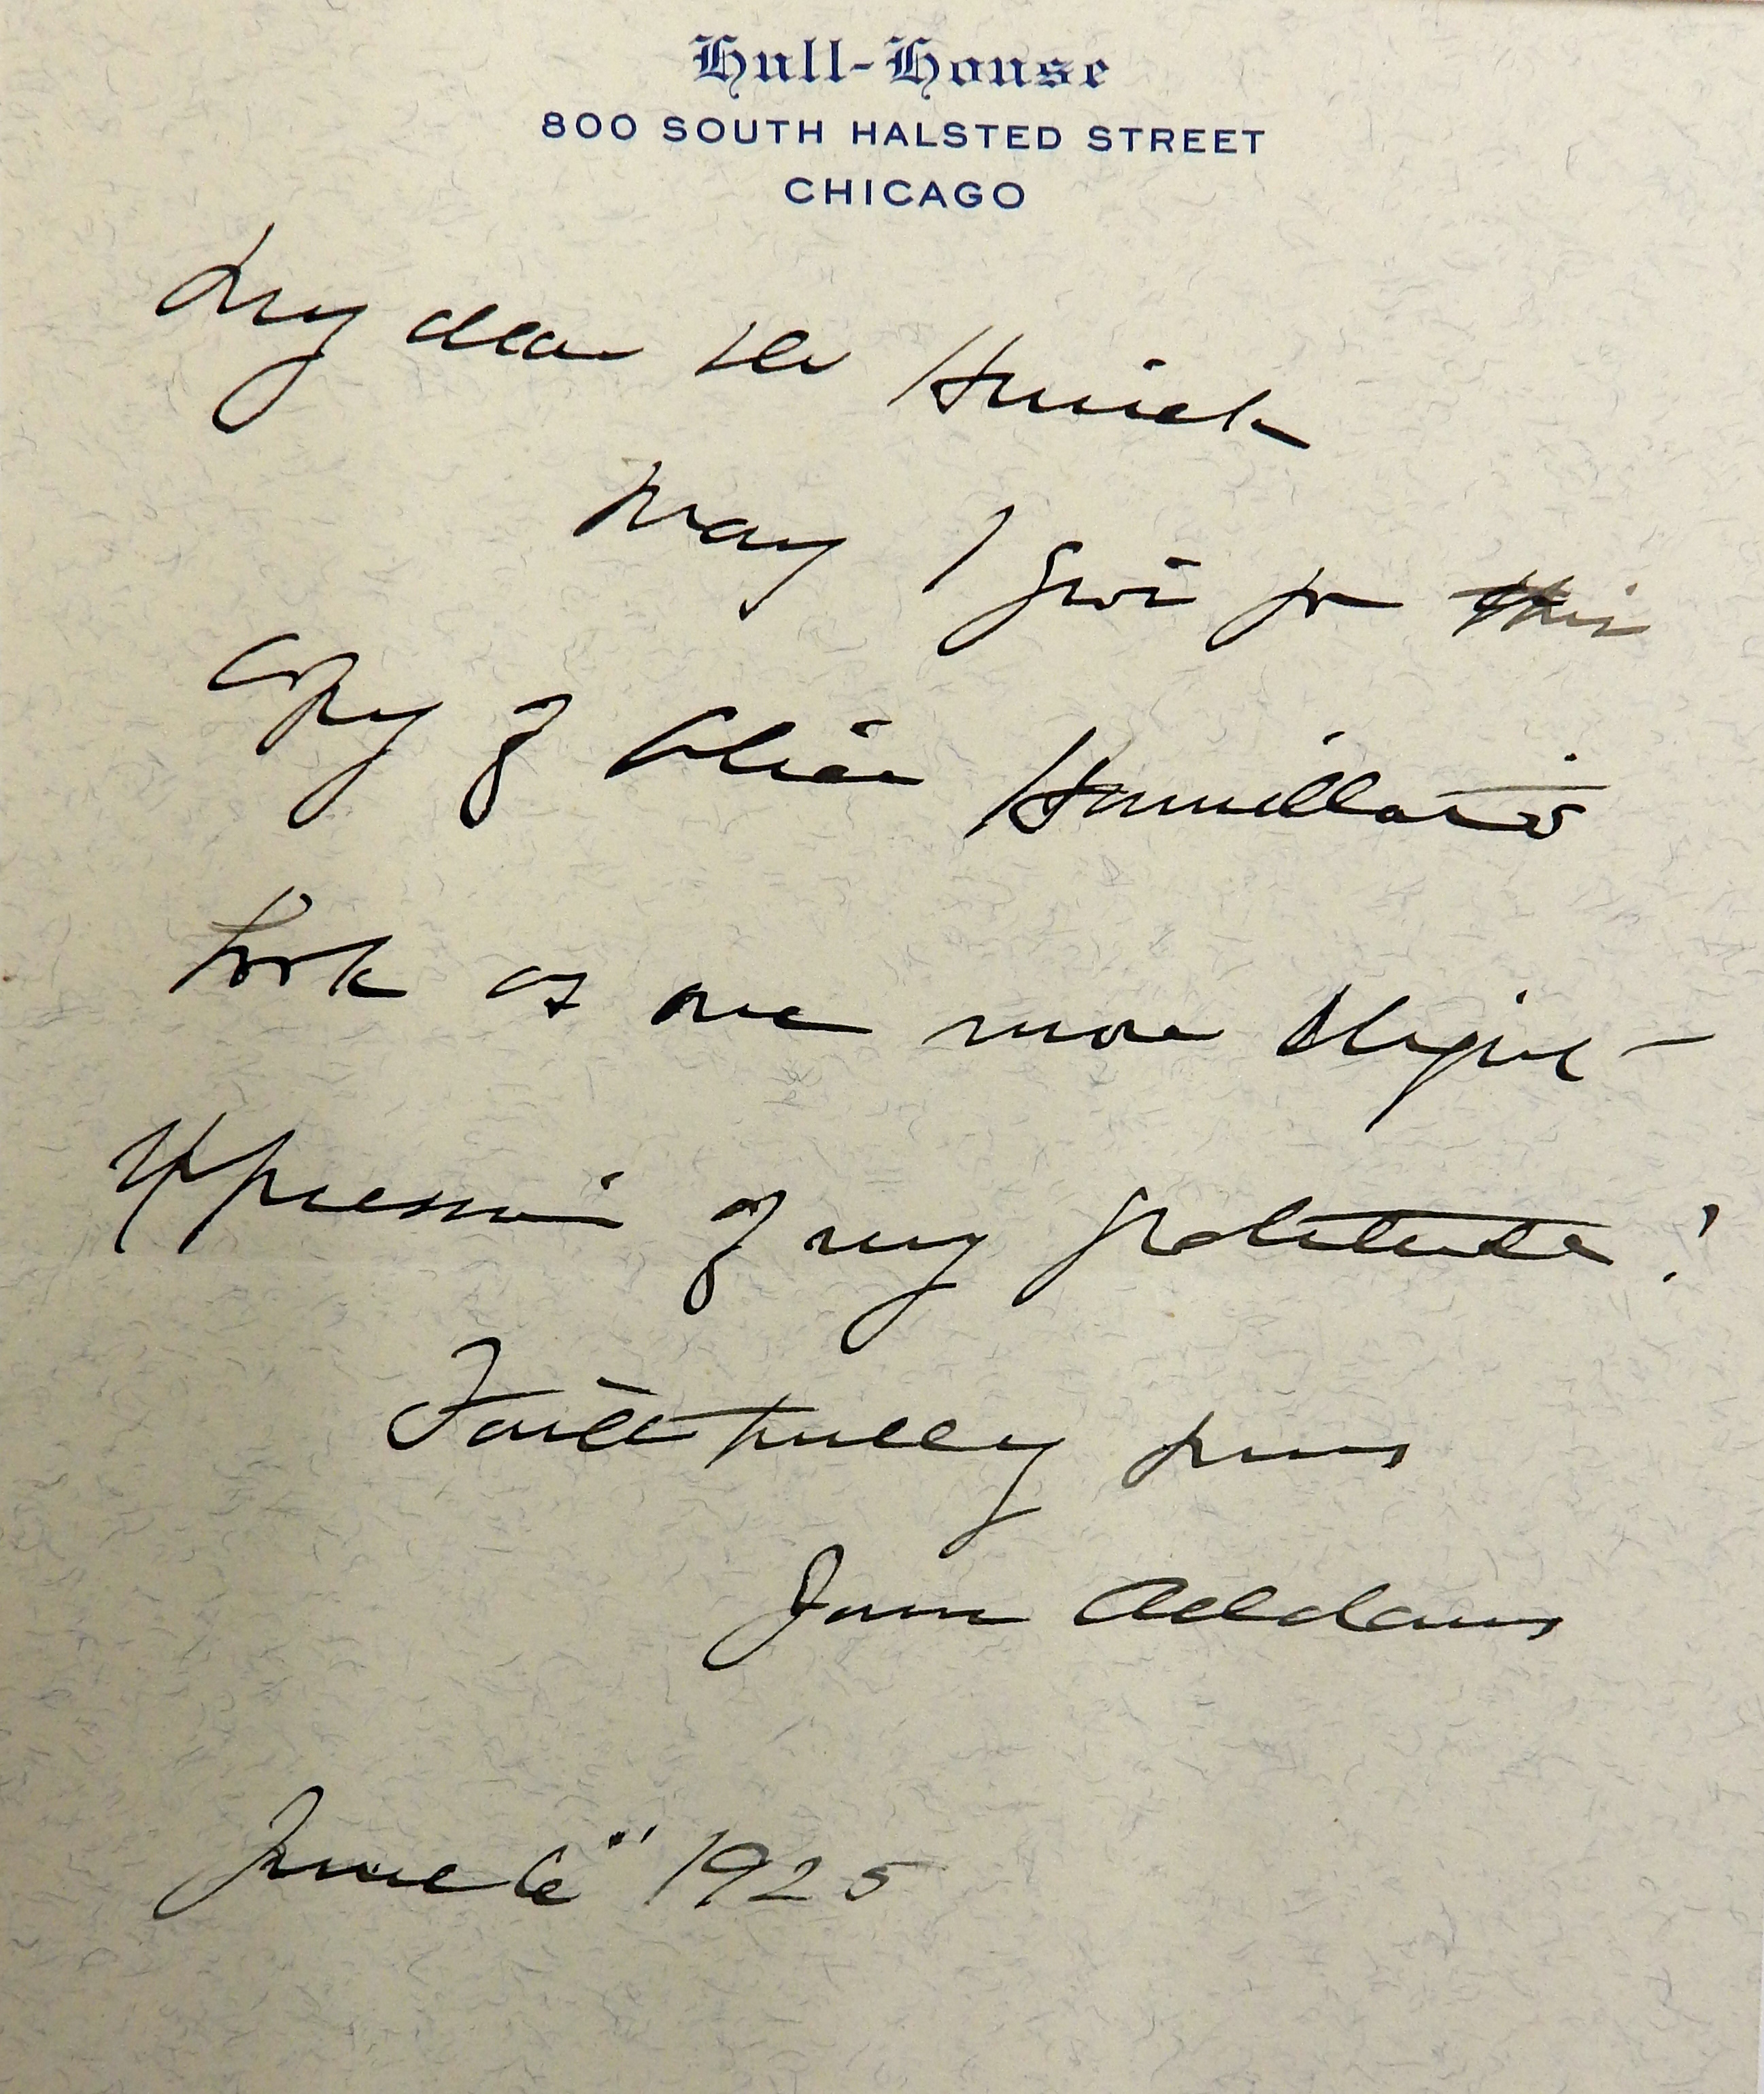 Hull-House
800 SOUTH HALSTED STREET
CHICAGO
My dear Dr
May I give you this
copy of Alice Hamilton's
book as one more slight
expression of my gratitude!
Faithfully yours
Jane Addams
June 6" 1925